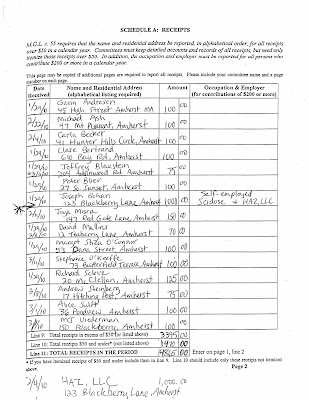 SCHEDULE A: RECEIPTS
M.G.L. c. 55 requires that the name and residential address be reported, in alphabetical order, for all receipts
over $50 in a calendar year. Committees must keep detailed accounts and records of all receipts, but need only
itemize those receipts over $50. In addition, the occupation and employer must be reported for all persons who
contribute $200 or more in a calendar year.
This page may be copied if additional pages are required to report all receipts. Please include your committee name and a page
number on each page.
Date Received Name and Residential Address (alphabetical listing required) Amount Occupation & Employer (for contributions of $200 or more)
Gavin Andresen
45 High Street Amherst MA 100 00
Michael Aph
47 Mt Pleasant, Amherst 100 00
Carla Becker
41 Hunter Hills Circle, Amherst 100 00
Clare Bertrand
610 Bay Rd. Amherst 100 00
Jeffrey Blaustein
Rd Amherst 75 00
Peter Blier
27 So. Sunset, Amherst 100 00
Joseph Bohan Self-employed
133 Blackberry Lane Amherst 1000 Scidose + HAZ, LLC
Joya Misra
147 Red Gate Lane, Amherst 150 00
David Mullins
12 Teaberry Lane, Amherst 70 00
Margot O'Connor
53 Dana Street, Amherst 100 00
Stephanie O'Keeffe
73 Butterfield Terrace, Amherst 100 00
Richard
20 McClellan, Amherst 125 00
Andrew Steinberg
17 Hitching Post, Amherst 75 00
Alice Swift
36 Amherst 100 00
MJ Viederman
150 Blackberry, Amherst 100 00
Line 9: Total receipts in excess of $50* (or listed above) 3395 00
Line 10: Total receipts $50 and under* (not listed above) 1410 00
Line 11: TOTAL RECEIPTS IN THE PERIOD 4865 00 Enter on page 1, line 2
* If you have itemized receipts of $50 and under include them in line 9. Line 10 should include only those receipts not itemized
above. Page 2
2/9/10 HAZ, LLC 1,000.00
133 Blackberry Lane, Amherst